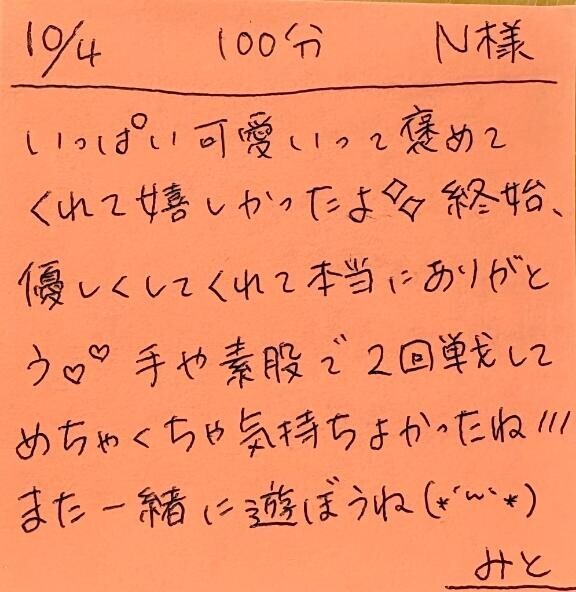 10/4 100分 N様
いっぱい可愛いって褒めて
くれて嬉しかったよ◇◇ 終始、
優しくしてくれて本当にありがと
う♡♡ 手や素股で2回戦して
めちゃくちゃ気持ちよかったね!!!
また一緒に遊ぼうね(*´ω`*)
みと